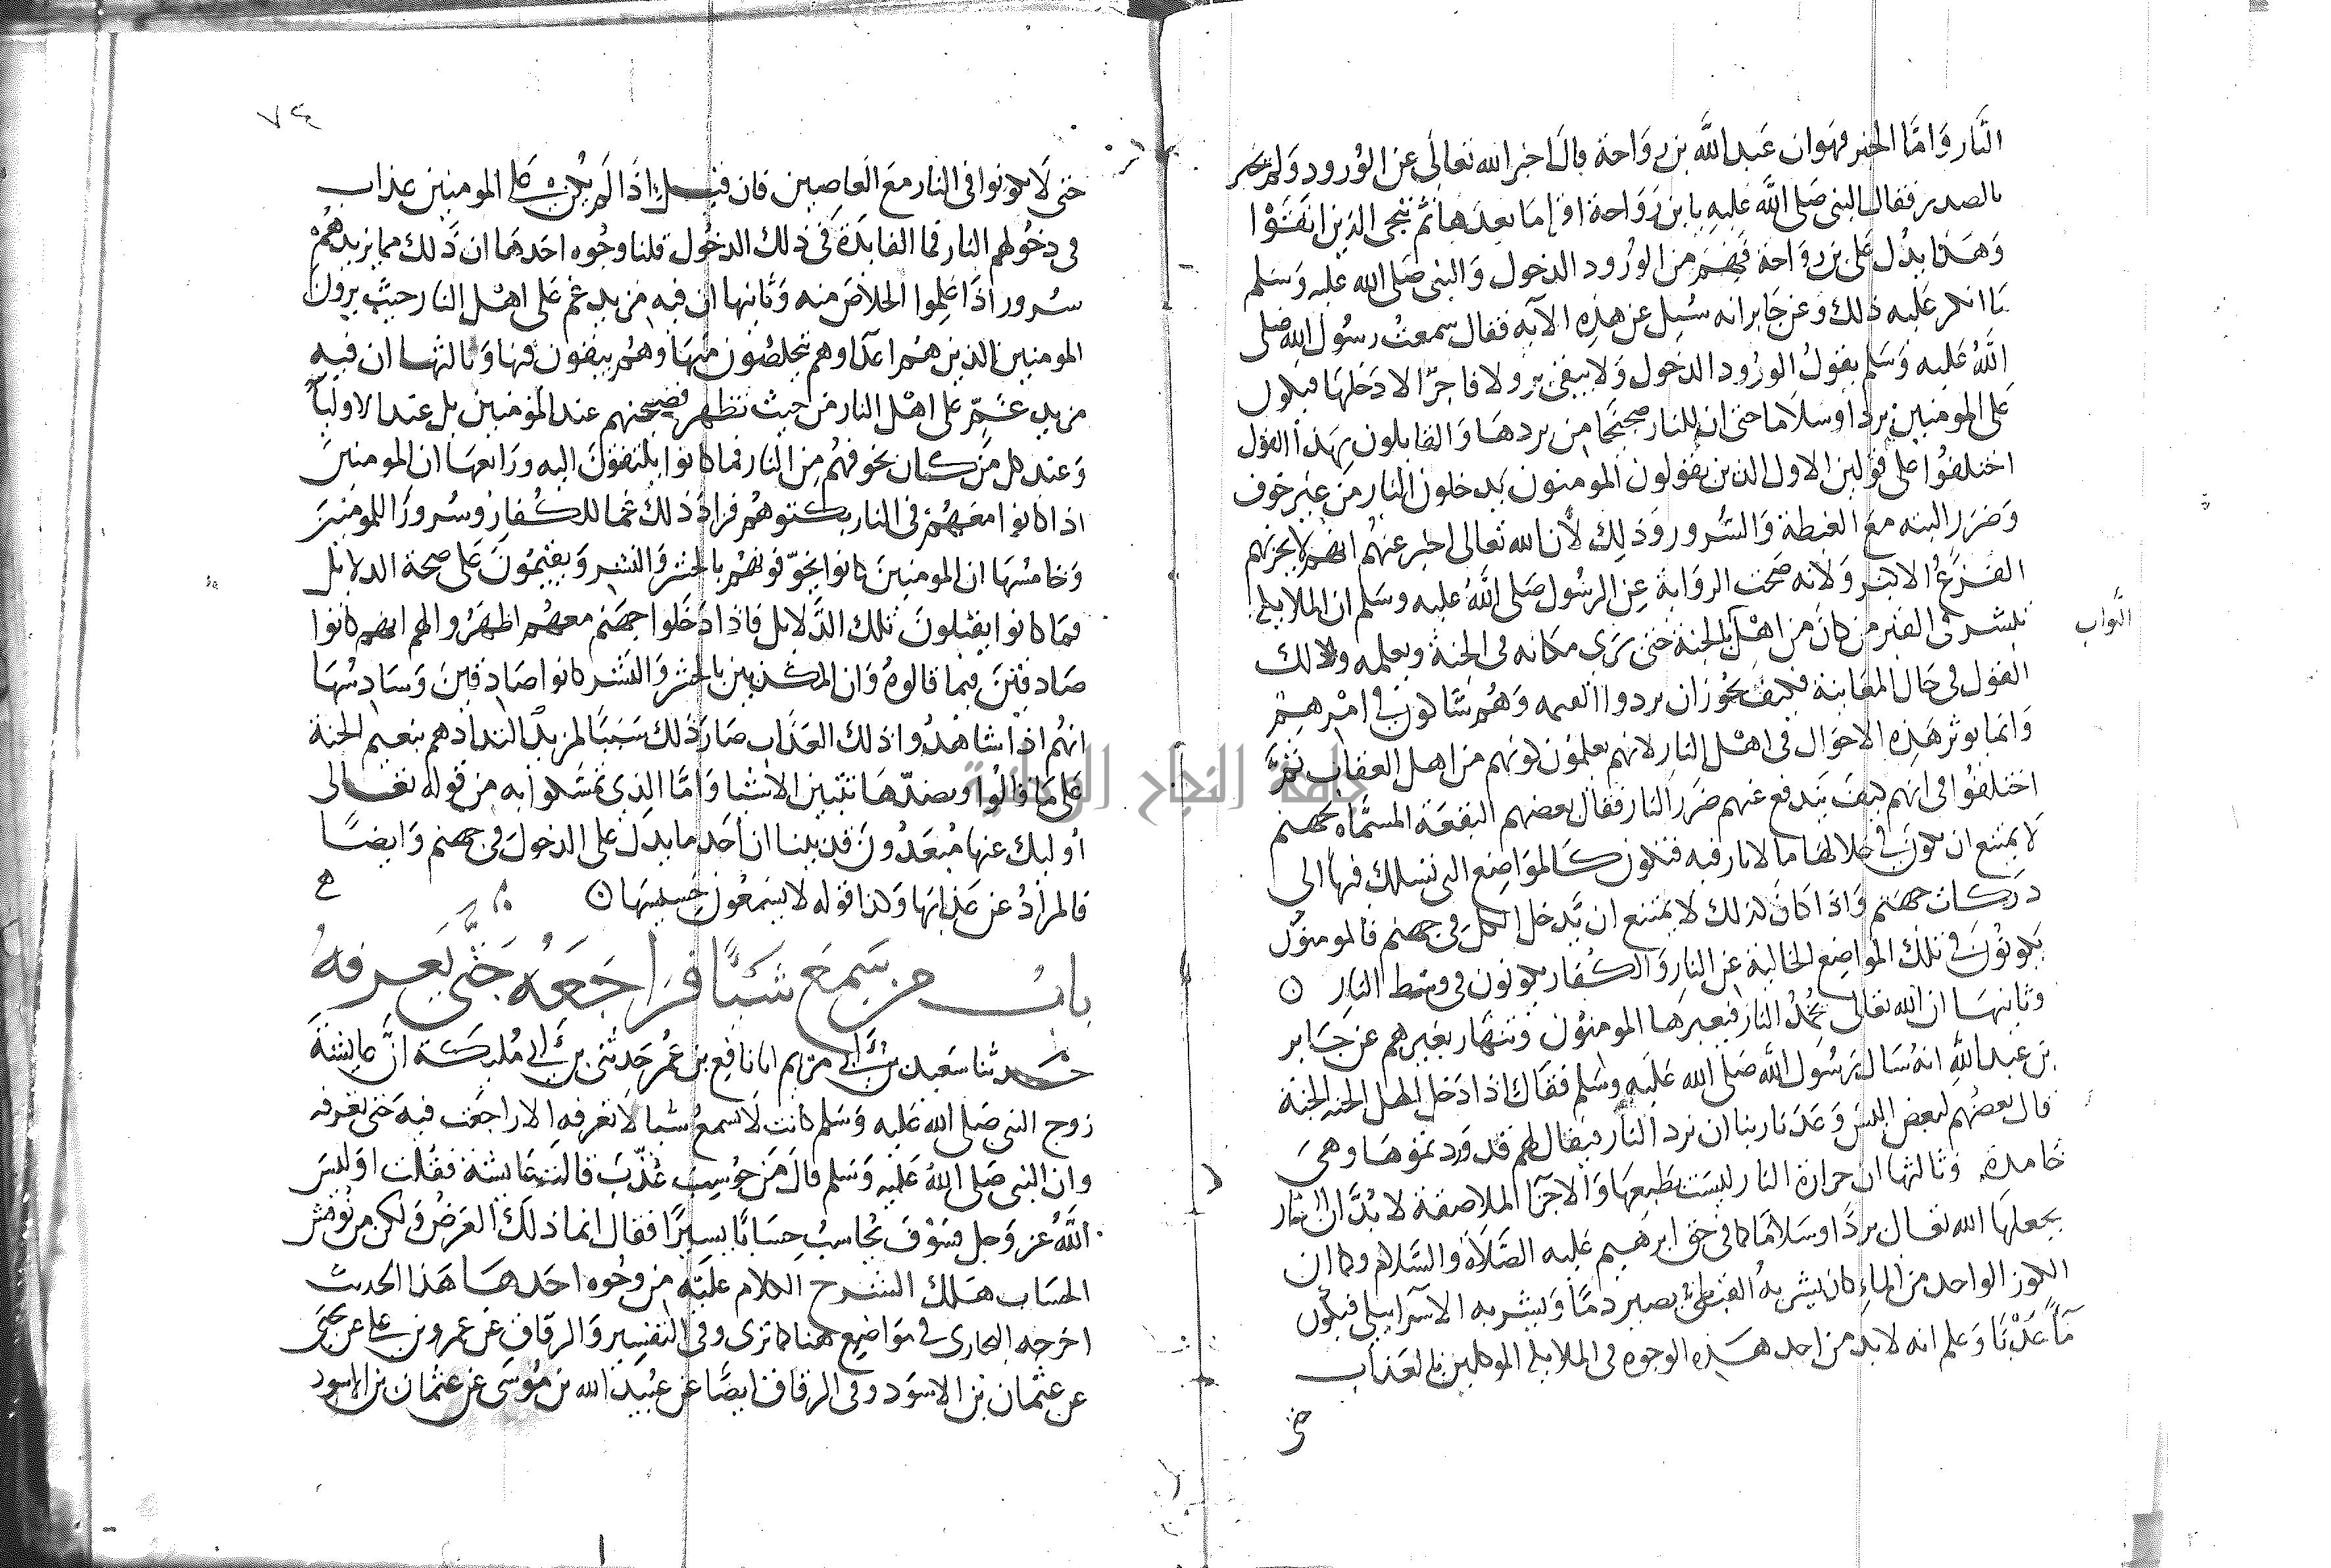 النَّار وَامَّا الخبر فهوان عَبد اللَّه بن رَوَاحة قال اخبر الله تعالى عن الوُرود وَلم يخبر
بالصدر فقال النبى صَلى اللَّه عليه يا بن رَوَاحة اقرأ ما بعدَها ثمَّ ننجى الذين اتقَوْا
وَهَذا يدُل عَلى بن رواحة فهم من الورُود الدخول وَالنبى صَلى الله عليه وَسَلم
مَا انكر عَليه ذلك وعن جَابر انه سُيل عن هَذِه الآيه فقال سمعتُ رسُول الله صَلى
اللَّهُ عَليه وَسَلم يقولُ الورُود الدخول وَلا يبقى بر ولا فاجرّ الا دَخلهَا فيكون
على المومنين بردا وسَلاما حتى ان للنار ضجيجًا من بردهَا وَالقايلون بهَذا القول
اختلفُوا على قولين الاول الذين يقولون المومنون يَدخلون النار من غير خوف
وَضرَر البته معَ الغبطة وَالسُّرور وَذلِك لأن الله تعالى اخبر عنهُم انهُم لا يحزنهم
الفَزَعُ الاكبر وَلانه صَحت الروَاية عن الرسُول صَلى اللَّهُ عليه وسَلم ان الملايكة
تبشر فى القبر من كانَ من اهْل الجنة حَتى يرَى مكانه فى الجنة ويعلمه وكذلك
الثَواب
القول فى حَال المعَاينة فكيفَ يجُوز ان يردوا القيمه وَهُم شاكون فى امْرهِمْ
وَانمَا يوثر هَذِه الاحوَال فى اهْل النار لانهم يعلمون كونهم من اهل العقاب ثمَّ
اختلفُوا فى انهم كيفَ يَندفع عنهم ضرَر النار فقالَ بعضهم البقعَة المسمَّاه بجهنم
لا يمتنع ان يكونَ فى خلالهَا ما لا نار فيه فتكون كالموَاضِع التى تسلك فيها الى
دركات جهنم وَاذا كانَ كذلك لا يمتنع ان يَدخل الكلَ فى جهنم فالمومنُون
يَكونُونَ فى تلك الموَاضِع الخالية عن النار وَالكُفار يكونون فى وسَط النارِ ن
وثانيهَا ان الله تعَالى يُخْمُدُ النار فيعبرهَا المومنُون وتنهار بغيرهم عن جَابر
بن عبد اللَّه انهُ سَال رَسُول اللَّه صَلى الله عَليه وسَلم فقال اذا دَخل اهل الجنهِ الجنة
قال بعضُهم لبعض اليسَ وَعَدَنا ربنا ان نرد النار فيقال لهم قد وَردتمُوهَا وهىَ
خامدة وَثالثها ان حرارة النار ليسَت بطَبعِهَا وَالاجزا الملاصقة لا بُدَّ ان النار
يجعلهَا الله تعَالى بردًا وسَلامًا كما فى حق ابرهيم عَليه الصَّلاة والسَّلام وكما ان
الكوز الواحد من الماء كان يشربهُ القبطىُّ يصير دمًا وَيشربه الاسرايلى فيكون
مآءً عَذْبًا وعلم انه لا بد من احد هَذه الوجوه فى الملايكة الموكلين بالعَذاب
حتى
٧٤
حتى لا يكونوا فى النار معَ العَاصِين فان قيل اذا لم يكن على المومنين عذاب
فى دخُولهم النار فما الفايدَة فى ذلك الدخُول قلنا وجُوه احَدهَا ان ذَلك مما يزيدهُمْ
سُرور اذَا عَلِموا الخلاصَ منه وَثانيها ان فيه مَزيد غمّ عَلى اهْل النار حيثُ يرونَ
المومنين الذين هُم اعدَاوهم يتخلصُون منهَا وَهم يبقون فيها وَثالثهَا ان فيه
مزيد غَمِّ على اهْل النار من حيث تظهر فضيحتهم عند المؤمنينَ بل عند الاوليآ
وَعند كل مَن كان يخوفهُم مِن النار فما كانوا يلتفتونَ اليه ورَابعهَا ان المومنينَ
اذا كانوا معَهُمْ فى النار يبكتوهُم فزادَ ذلك غمًا للكُفار وَسُرورًا للمومنينَ
وَخامسُهَا ان المومنينَ كانوا يخوّفونهُم بالحشر وَالنشر وَيقيمُونَ عَلى صِحة الدلايل
فمَا كانوا يقبلونَ تلك الدَّلايل فاذا دَخَلوا جهَنم معهُم اظهَرُوا لهم انهم كانوا
صَادقينَ فيمَا قالوهُ وَان المكذبين بالحشر وَالنشر كانوا صَادِقين وَسَادسُهَا
انهُم اذا شاهَدُوا ذلك العَذَاب صَارَ ذَلك سَبَبًا لمزيد التذاذهم بنعيم الجنة
عَلى مَا قالوُا وبضدّهَا تتبين الاشيا وَامَّا الذى تمسّكوا به من قوله تعَالى
أوليك عنها مُبعَدُونَ قد بينا ان اَحَد ما يدلّ على الدخولَ فى جهنم وَايضًا
فالمرادُ عن عَذابهَا وَكذا قوله لا يسمعُون حَسِيسَهَا ن
بابُ من سَمِعَ شيئًا فرَاجَعَهُ حَتَّى يَعرفهُ
حَدثنا سَعيد بن ابى مَريم انا نافِع بن عُمر حَدثنى بن ابى مُليكة انَّ عايشةَ
زوج النبى صَلى الله عَليه وَسَلم كانت لا تسمعُ شيا لا تعرفه الا راجَعَت فيه حَتى تعرفه
وان النبى صَلى اللهُ عَليه وَسَلم قالَ مَن حُوسِبَ عُذّبَ قالت عَايشة فقلت اوَليسَ
اللَّهُ عز وَجل فسَوْفَ يُحاسبُ حِسَابًا يسِيرًا فقال انما ذلكَ العَرضُ وَلكن من نُوقش
الحسَاب هَلك الشرح الكلام عليَه من وجُوه احَدهَا هَذا الحديث
اخرجه البخارى فى موَاضِع هنا كما ترى وفى التفسِير وَالرقاق عن عمرو بن على عن يحيى
عن عثمان بن الاسوَد وفى الرقاق ايضًا عَن عبيد الله بن مُوسَى عن عثمان بن الاسود
جامعة النجاح الوطنية